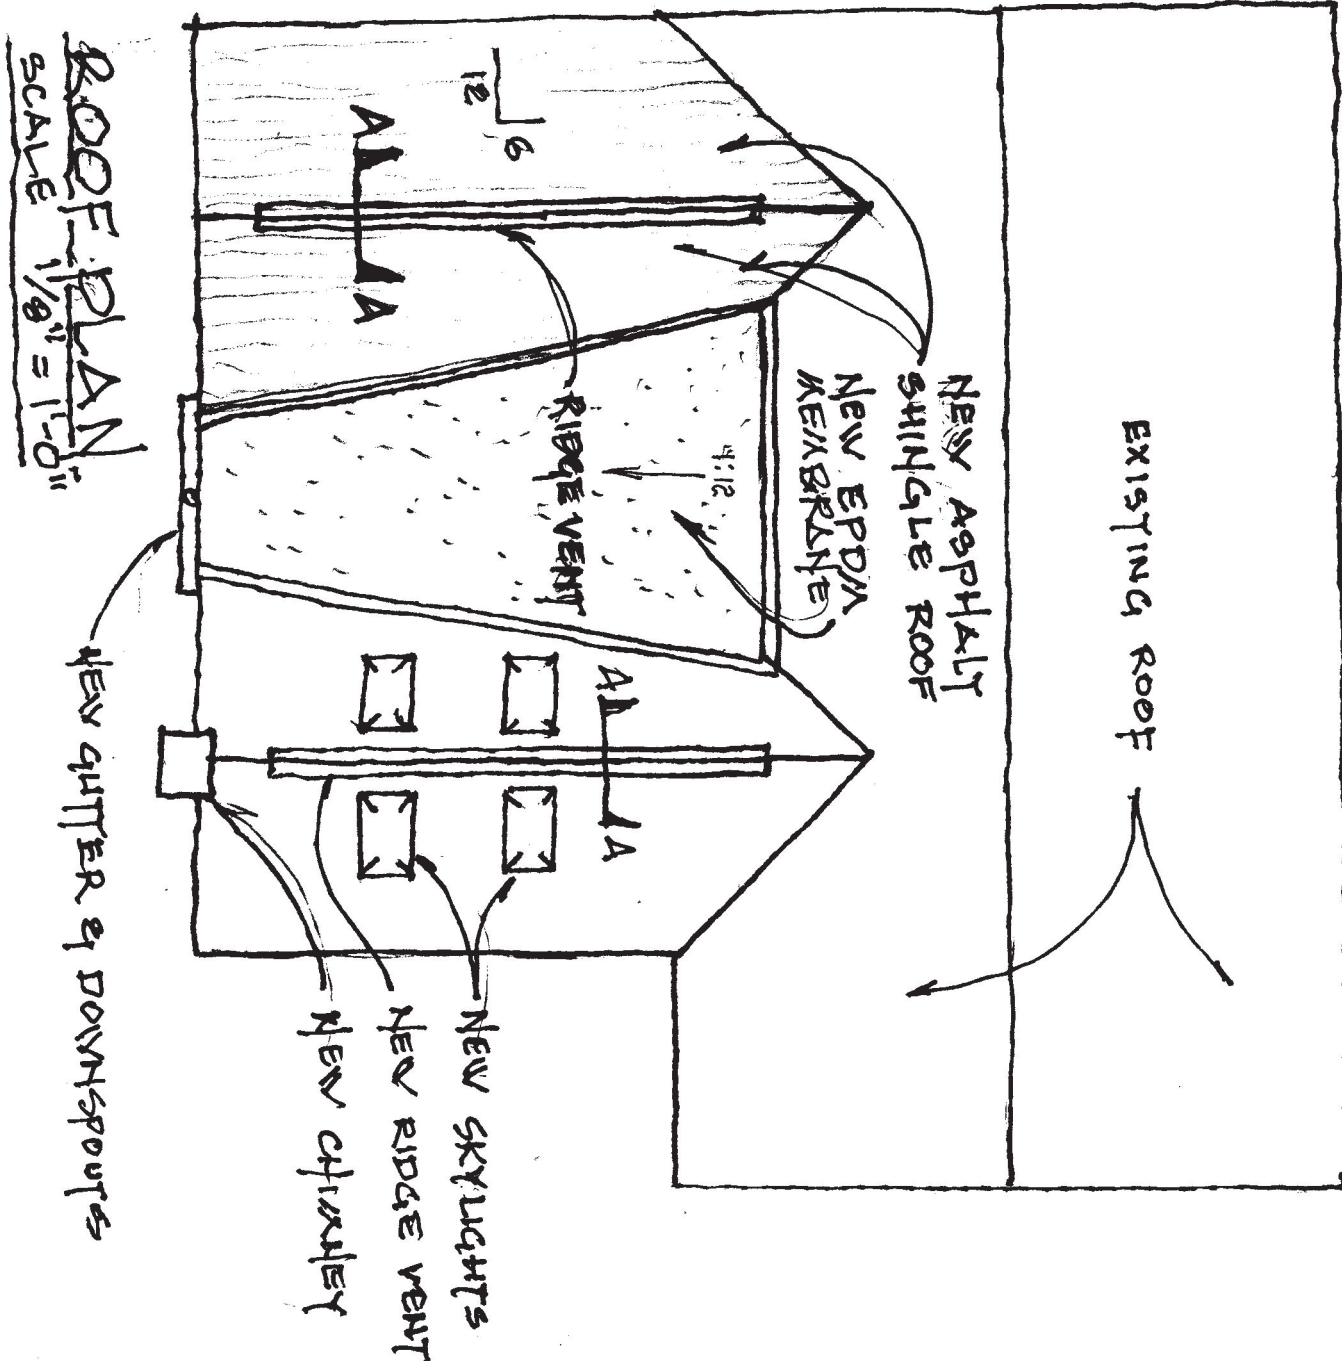 EXISTING ROOF
NEW ASPHALT
SHINGLE ROOF
NEW EPDM
MEMBRANE
4:12
RIDGE VENT
12
6
A
A
A
A
NEW SKYLIGHTS
NEW RIDGE VENT
NEW CHIMNEY
NEW GUTTER & DOWNSPOUTS
ROOF PLAN
SCALE 1/8" = 1'-0"